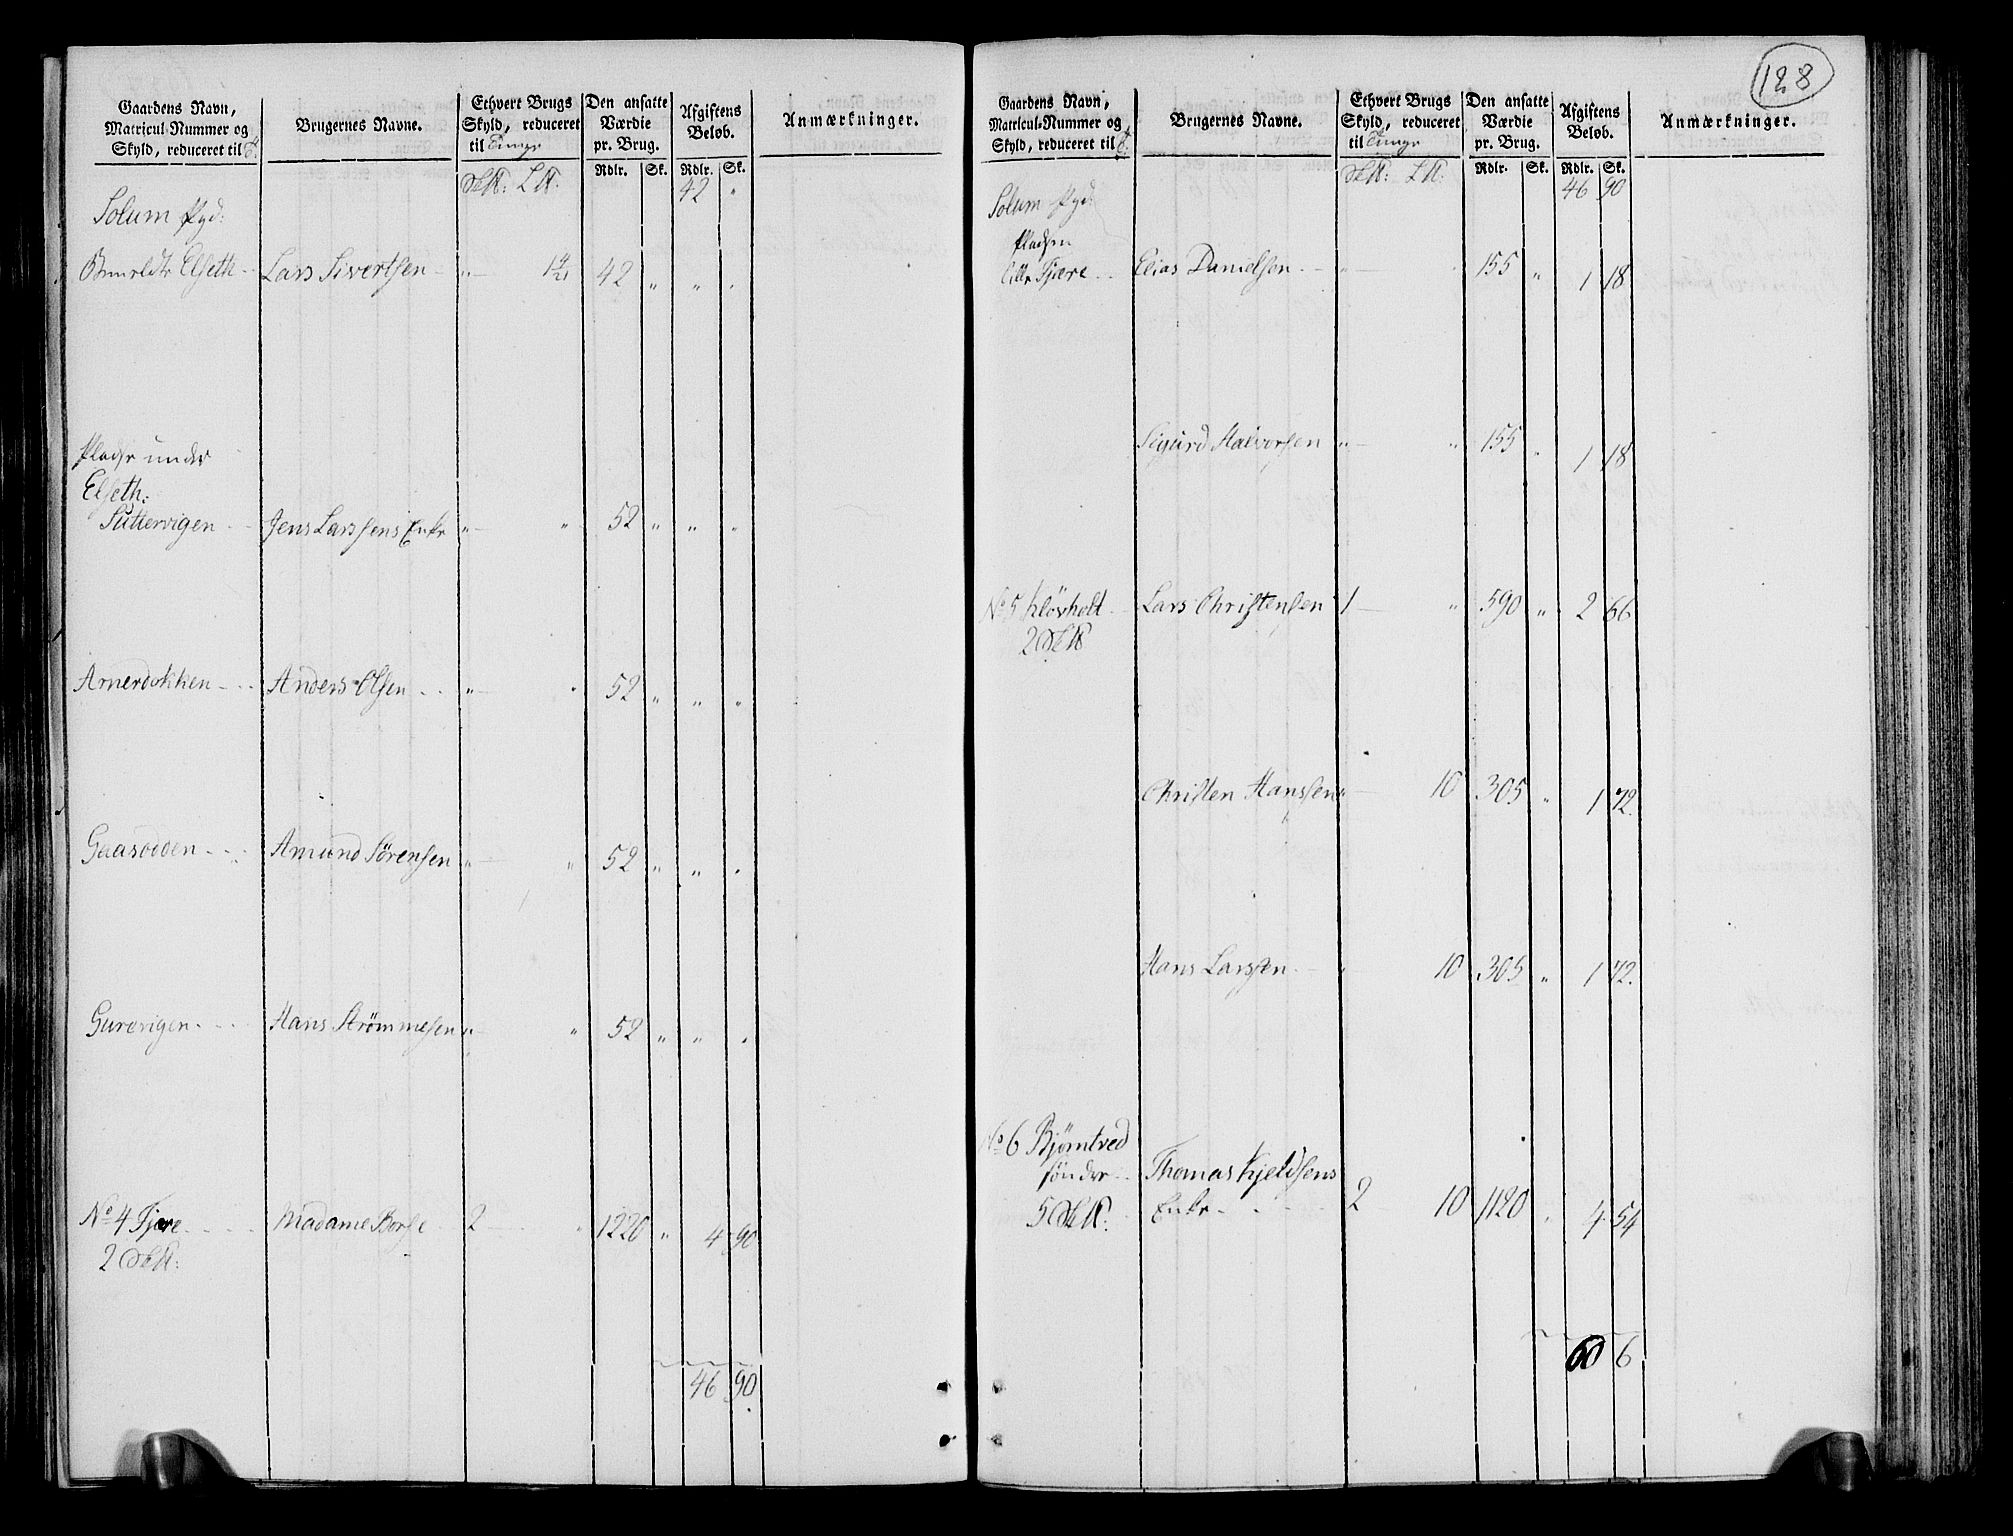 128
Gaardens Navn, Matricul-Nummer og Skyld, reduceret til
Brugernes Navne.
Ethvert Brugs Skyld, reduceret til Tunge
Den ansatte Værdie pr. Brug.
Afgiftens Beløb.
Anmærkninger.
Rdlr. Sk. Rdlr. Sk.
42 "
Solum Pgd:
Elseth - Lars Sivertsen - " 42 " " "
Pladse under
Elseth:
Suttervigen - Jens Larssens Enke " " 52 " " "
Arnerdokken - - - Anders Olsen - - " " 52 " " "
Gaasodden - - - Amund Sørensen " " 52 " " "
Gurevigen - - - Hans Strømmesen " " 52 " " "
No 4 Fjære - - - Madame Borse 2 " 1220 " 4 90
2
46 90
Gaardens Navn, Matricul-Nummer og Skyld, reduceret til
Brugernes Navne.
Ethvert Brugs Skyld, reduceret til Tunge
Den ansatte Værdie pr. Brug.
Afgiftens Beløb.
Anmærkninger.
Rdlr. Sk. Rdlr. Sk.
46 90
Solum Pgd:
Pladsen
Lille Fjære - - Elias Danielsen - - " " 155 " 1 18
Sigurd Halvorsen " " 155 " 1 18
No 5 Kløvholt - Lars Christensen 1 " 590 " 2 66
2
Christen Hanssen " 10 305 " 1 72.
Hans Larssen - " 10 305 " 1 72.
No 6 Bjørntved
søndre - - Thomas Kjeldsens
5 Enke - - - - 2 10 1120 " 4 54
60 6